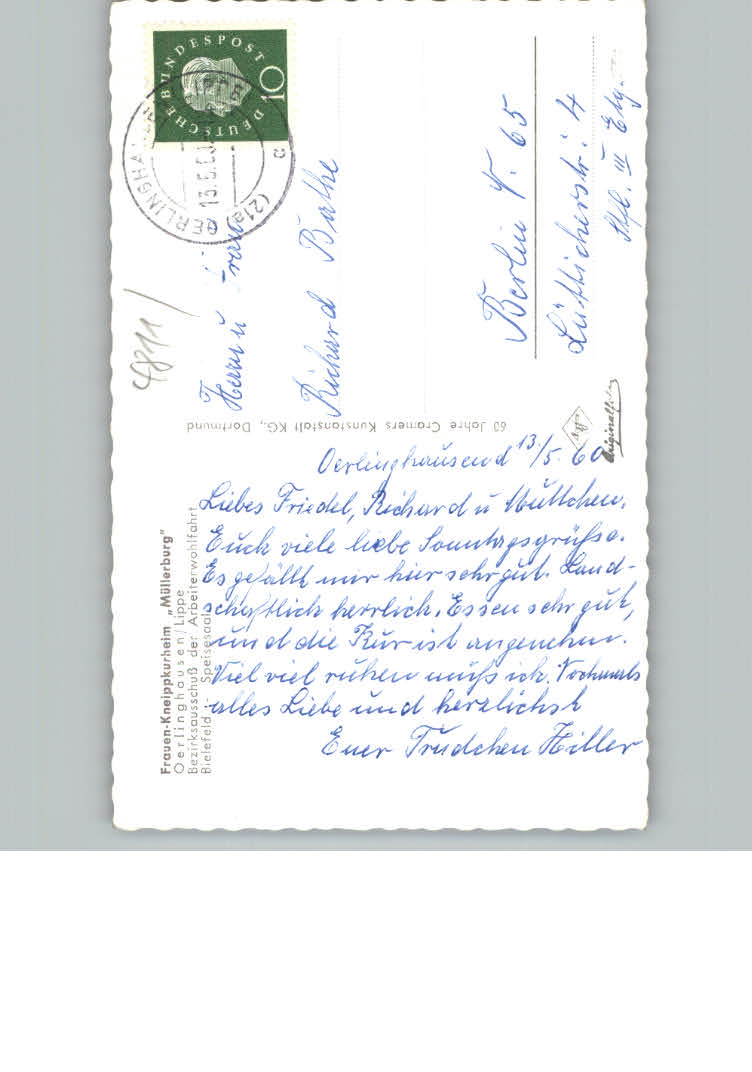 Frauen-Kneippkurheim „Müllerburg"
Oerlinghausen/Lippe
Bezirksausschuß der Arbeiterwohlfahrt
Bielefeld - Speisesaal
Oerlinghausend 13./5.60
Liebes Friedel, Richard u Muttchen.
Euch viele liebe Sonntagsgrüße.
Es gefällt mir hier sehr gut. Land-
schaftlich herrlich. Essen sehr gut,
und die Kur ist angenehm.
Viel viel ruhen muß ich. Nochmals
alles Liebe und herzlichst
Euer Trudchen Hiller
60 Jahre Cramers Kunstanstalt KG., Dortmund
Originalfoto
4811/
DEUTSCHE BUNDESPOST
10
(21a) OERLINGHAUSEN
13.5.60
c
Herrn u Frau
Richard Bathe
Berlin N. 65
Lütticherstr. 4
III Etg.